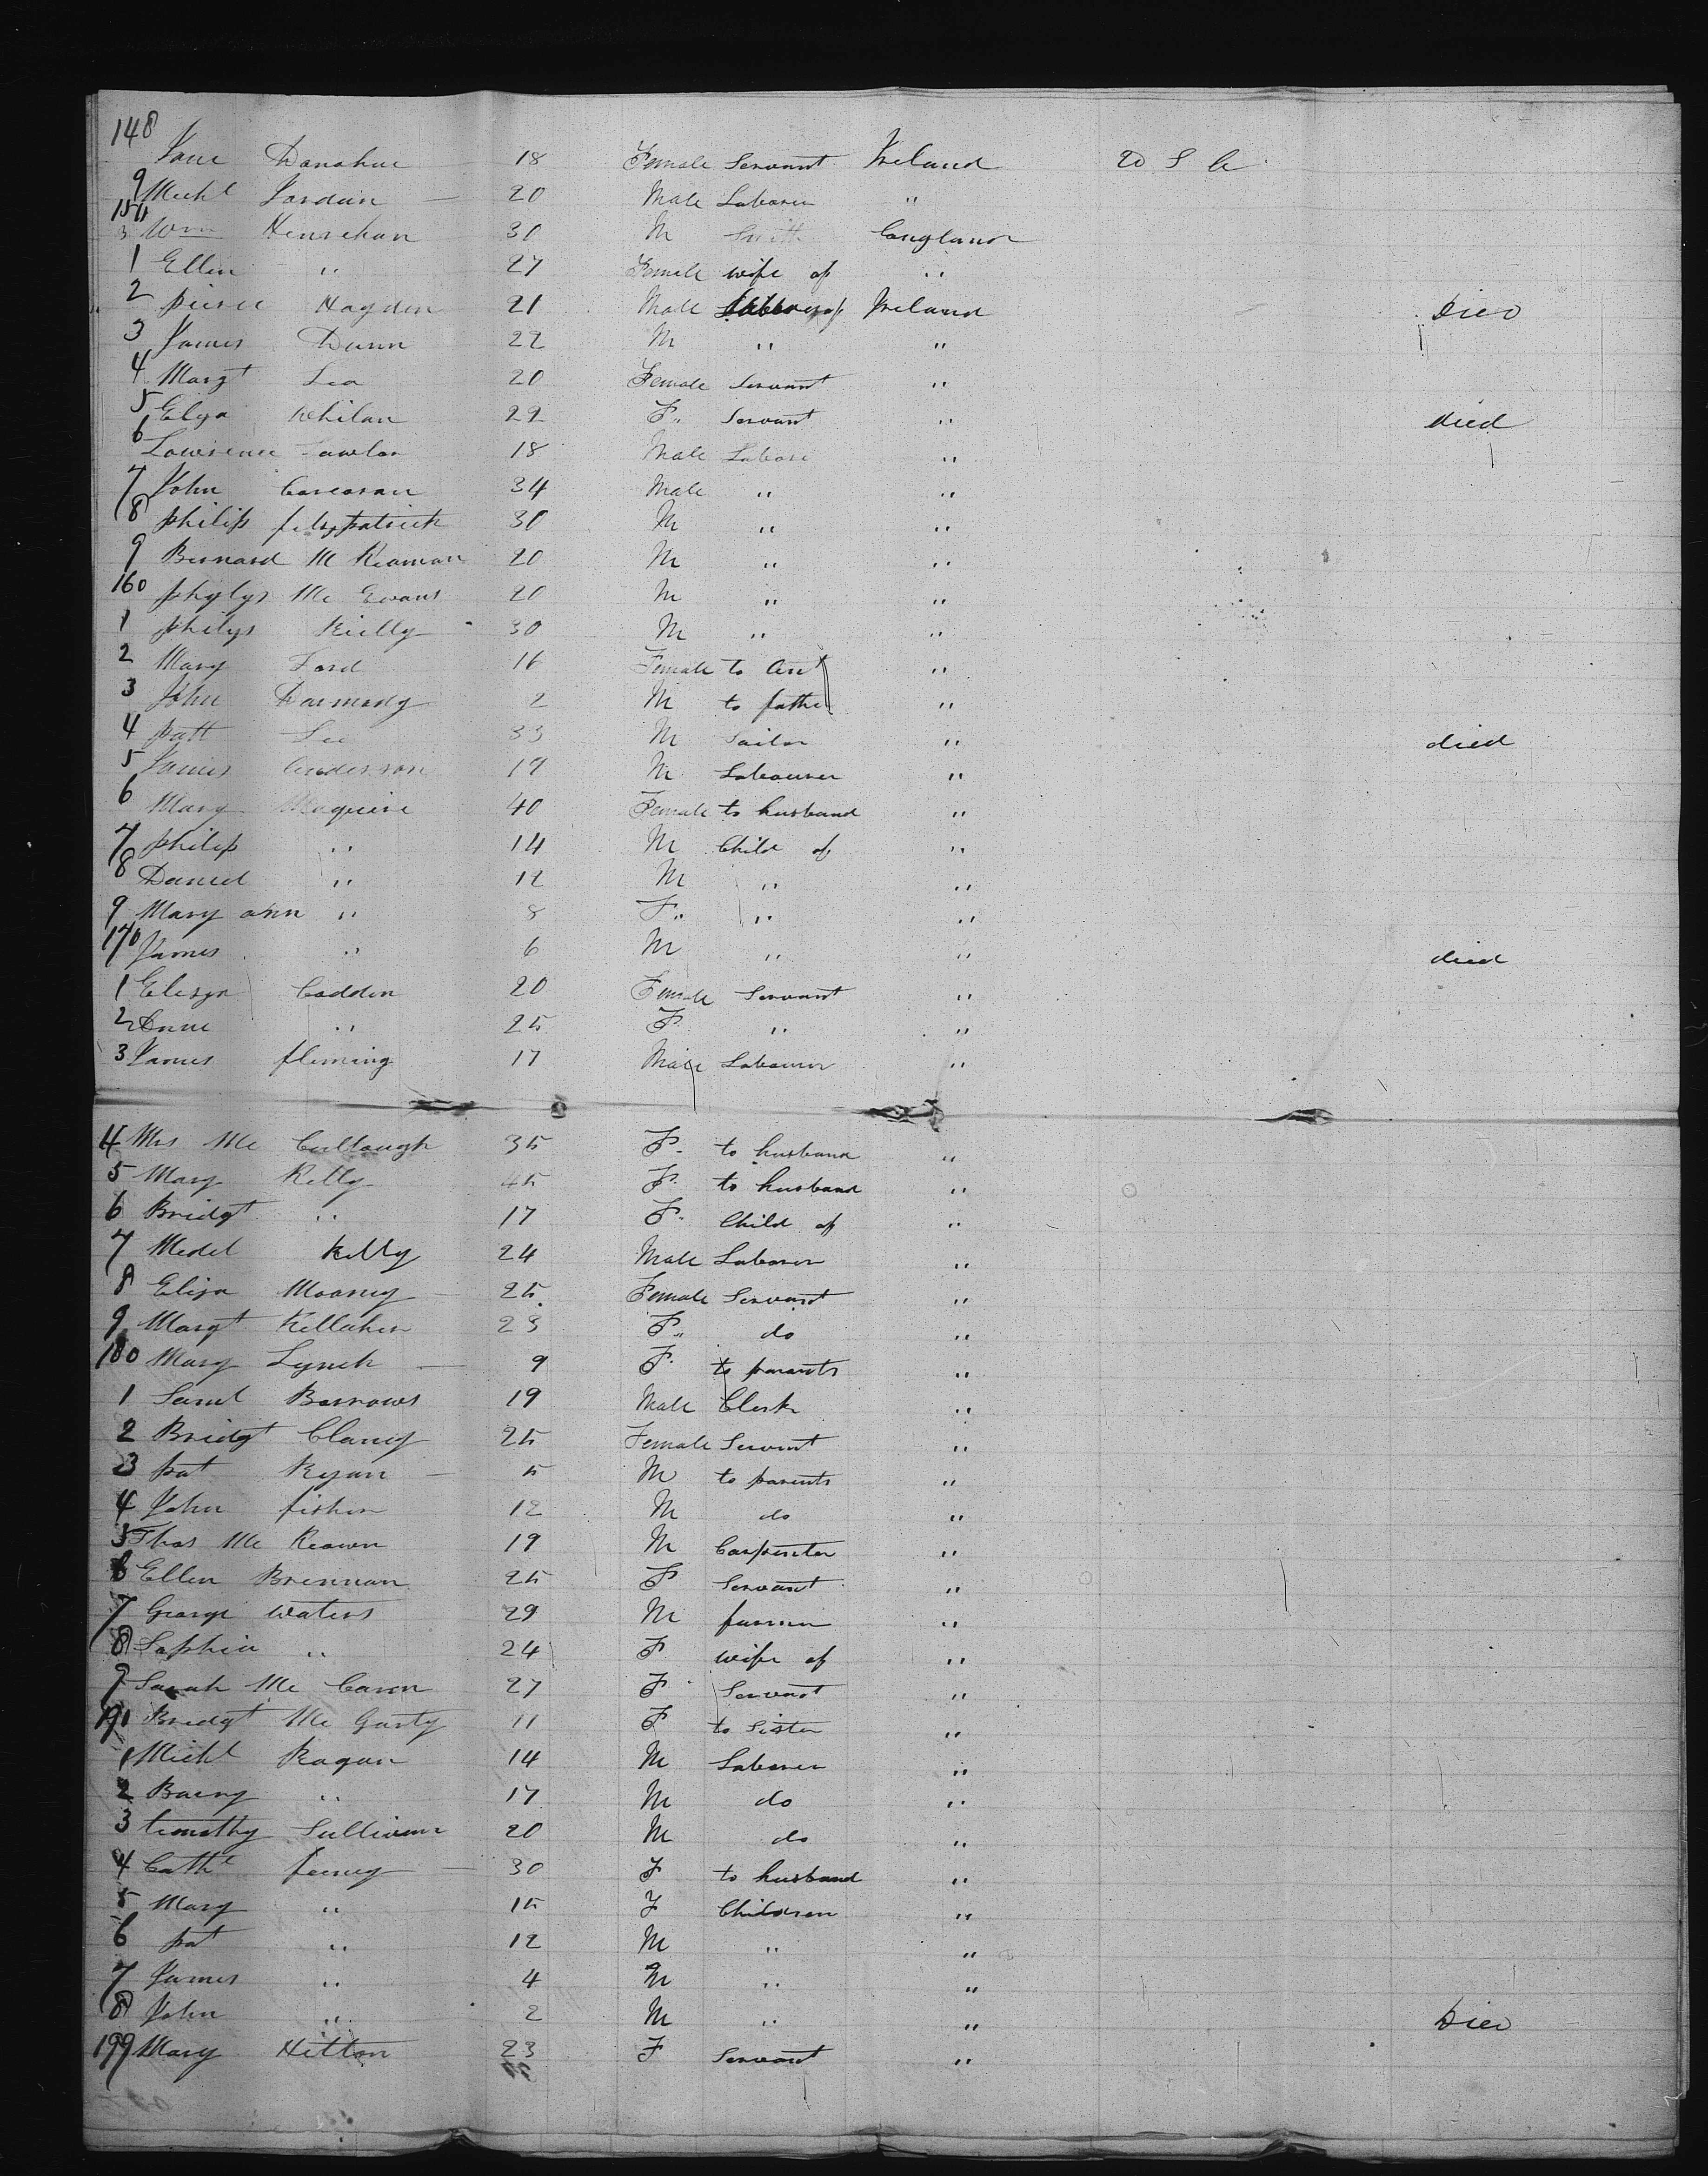 148 Jane Donahue 18 Female Servant Ireland U S A
9 Michl Jordan — 20 Male Laborer "
150 Wm Henrehan 30 M Smith England
1 Ellen " 27 Female wife of "
2 pierce Hayden 21 Male Ireland Died
3 James Dunn 22 M " "
4 Margt Lea 20 Female Servant "
5 Elza Whilan 22 F " Servant " died
6 Lawrence Lawlor 18 Male Labore "
7 John Corcoran 34 Male " "
8 philip fitzpatrick 30 M " "
9 Bernard Mc Kiaman 20 M " "
160 phylys Mc Evans 20 M " "
1 philys Rielly 30 M " "
2 Mary Ford 16 Female to Ant "
3 John Darmody 2 M to father "
4 patt Lee 33 M Sailor " died
5 James Anderson 19 M Labourer "
6 Mary Maguire 40 Female to husband "
7 philip " 14 M Child of "
8 Daniel " 12 M " "
9 Mary ann " 8 F " " "
170 James " 6 M " " died
1 Elesza Caddon 20 Female Servant "
2 Anne " 25 F " "
3 James fleming 17 Male Labourer "
4 Mrs Mc Cullough 35 F to husband "
5 Mary Kelly 45 F to husband "
6 Bridgt " 17 F Child of "
7 Kelly 24 Male Laborer "
8 Eliza Mooney — 25 Female Servant "
9 Margt Kellahen 23 F " do "
180 Mary Lynch — 9 F to parents "
1 Saml Barrows 19 Male Clerk "
2 Bridgt Clancy 25 Female Servent "
3 pat Ryan — 5 M to parents "
4 John fisher 12 M do "
5 Thos Mc Keown 19 M Carpenter "
6 Ellen Brennan 25 F Servant "
7 George Waters 29 M farmer "
8 Sophia " 24 F wife of "
9 Sarah Mc Caren 27 F Servant "
190 Bridgt Mc Garty 11 F to Sister "
1 Michl Ragan 14 M Laborer "
2 Barny " 17 M do "
3 timothy Sullivan 20 M do "
4 Cathe feeney — 30 F to husband "
5 Mary " 15 F Children "
6 pat " 12 M " "
7 James " 4 M " "
8 John " 2 M " " Died
199 Mary Hitton 23 F Servant "